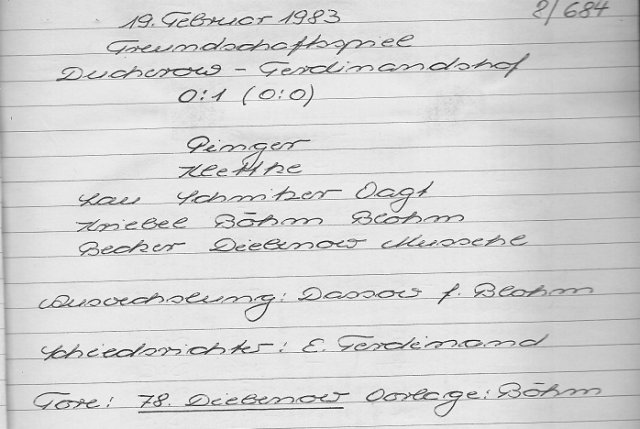 19. Februar 1983 2/684
Freundschaftsspiel
Ducherow - Ferdinandshof
0:1 (0:0)
Pinger
Klettke
Lau Schnitzer Vagt
Kriebel Böhm Blohm
Becker Diebenow Mussehl
Auswechslung: Dassow f. Blohm
Schiedsrichter: E. Ferdinand
Tore: 78. Diebenow Vorlage: Böhm